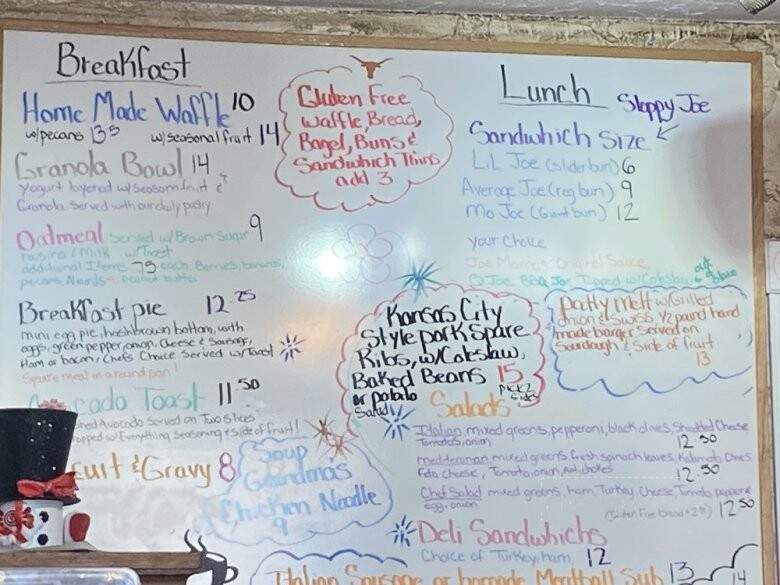 Breakfast
Home Made Waffle 10
w/pecans 13⁵ w/seasonal fruit 14
Granola Bowl 14
Yogurt layered w/season fruit &
Granola Served with our daily pastry
Oatmeal Served w/Brown Sugar 9
raisins & Milk w/Toast
additional Items 75 each, Berries, bananas,
pecans,
Breakfast pie 12.25
mini egg pie, hashbrown bottom, with
eggs, green pepper, onion, Cheese & Sausage,
Ham or bacon, Chefs Choice Served w/Toast
Square meal in a round pan!
cado Toast 11.50
shed Avocado Served on Two slices
opped w/Everything Seasoning & side of fruit!
cuit & Gravy 8
Gluten Free
Waffle, Bread,
Bagel, Buns &
Sandwhich Thins
add 3
Soup
Grandma's
Chicken Noodle
9
Lunch
Sloppy Joe
Sandwhich Size
Lil Joe (slider bun) 6
Average Joe (reg bun) 9
Mo Joe (Giant bun) 12
Your Choice
Joe Sauce
Q Joe, BBQ Joe Topped w/Coleslaw
Kansas City
Style pork Spare
Ribs, w/Coleslaw,
Baked Beans 15
or potato Salad Pick 2 Sides
patty melt w/Grilled
onion & Swiss, 1/2 pound hand
made burger Served on
Sourdough & Side of fruit
13
Salads
Italian mixed greens, pepperoni, black olives, Shredded Cheese
Tomatoes, onion 12.50
mediteranian, mixed greens fresh spinach leaves, Kalamata Olives
Feta Cheese, Tomato, onion, Artichokes 12.50
Chef Salad mixed greens, ham, Turkey, Cheese, Tomato, pepperoni
egg, onion 12.50
Deli Sandwhichs
Choice of Turkey, ham 12
Italian Sausage or homade Meatball Sub 13